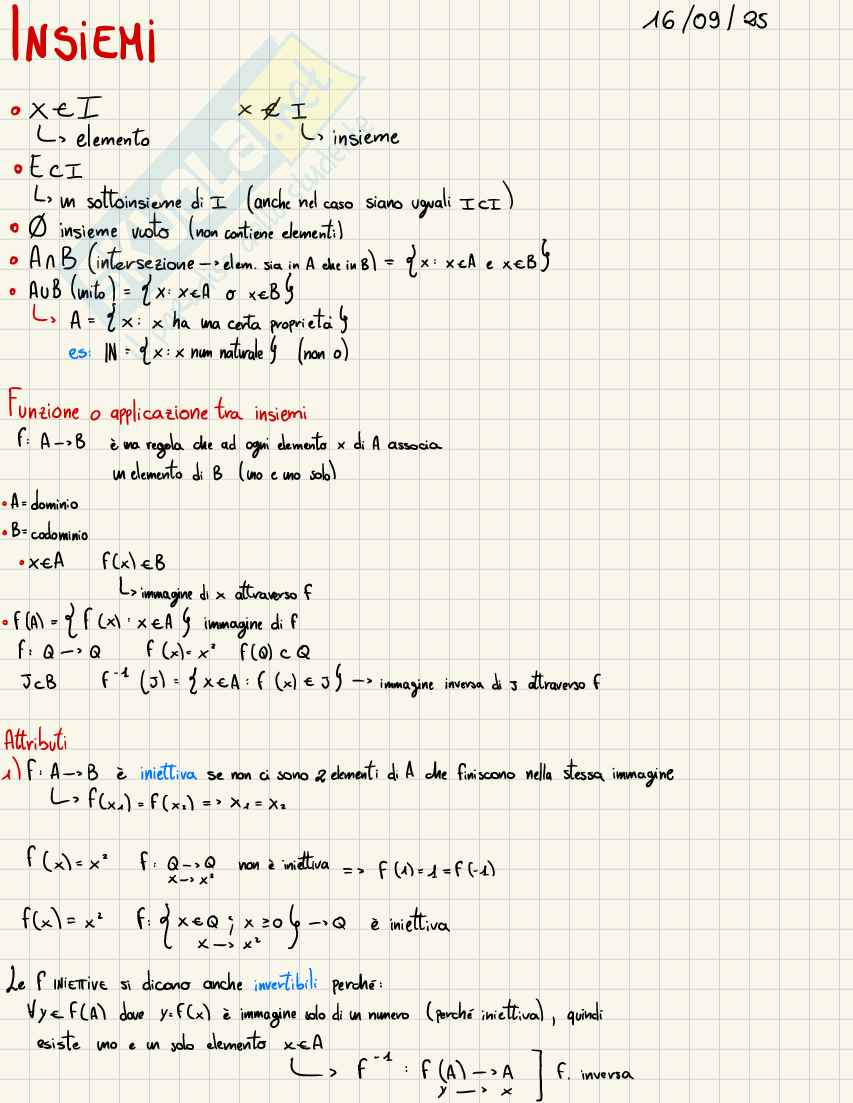 INSIEMI
16/09/25
• x ∈ I        x ∉ I
↳ elemento        ↳ insieme
• E ⊂ I
↳ un sottoinsieme di I (anche nel caso siano uguali I ⊂ I)
• Ø insieme vuoto (non contiene elementi)
• A ∩ B (intersezione → elem. sia in A che in B) = {x : x ∈ A e x ∈ B}
• A ∪ B (unito) = {x : x ∈ A o x ∈ B}
↳ A = {x : x ha una certa proprietà}
es: ℕ = {x : x num naturale} (non 0)
Funzione o applicazione tra insiemi
f: A → B è una regola che ad ogni elemento x di A associa
un elemento di B (uno e uno solo)
• A = dominio
• B = codominio
• x ∈ A    f(x) ∈ B
↳ immagine di x attraverso f
• f(A) = {f(x) : x ∈ A} immagine di f
f: Q → Q    f(x) = x²    f(Q) ⊂ Q
J ⊂ B    f⁻¹(J) = {x ∈ A : f(x) ∈ J} → immagine inversa di J attraverso f
Attributi
1) f: A → B è iniettiva se non ci sono 2 elementi di A che finiscono nella stessa immagine
↳ f(x₁) = f(x₂) => x₁ = x₂
f(x) = x²    f: Q → Q non è iniettiva => f(1) = 1 = f(-1)
x → x²
f(x) = x²    f: {x ∈ Q ; x ≥ 0} → Q è iniettiva
x → x²
Le f INIETTIVE si dicono anche invertibili perché:
∀y ∈ f(A) dove y = f(x) è immagine solo di un numero (perché iniettiva), quindi
esiste uno e un solo elemento x ∈ A
↳ f⁻¹ : f(A) → A ] f. inversa
y → x